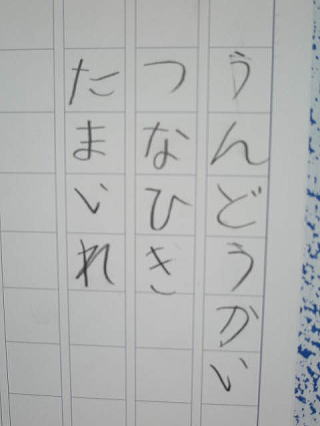 うんどうかい
つなひき
たまいれ